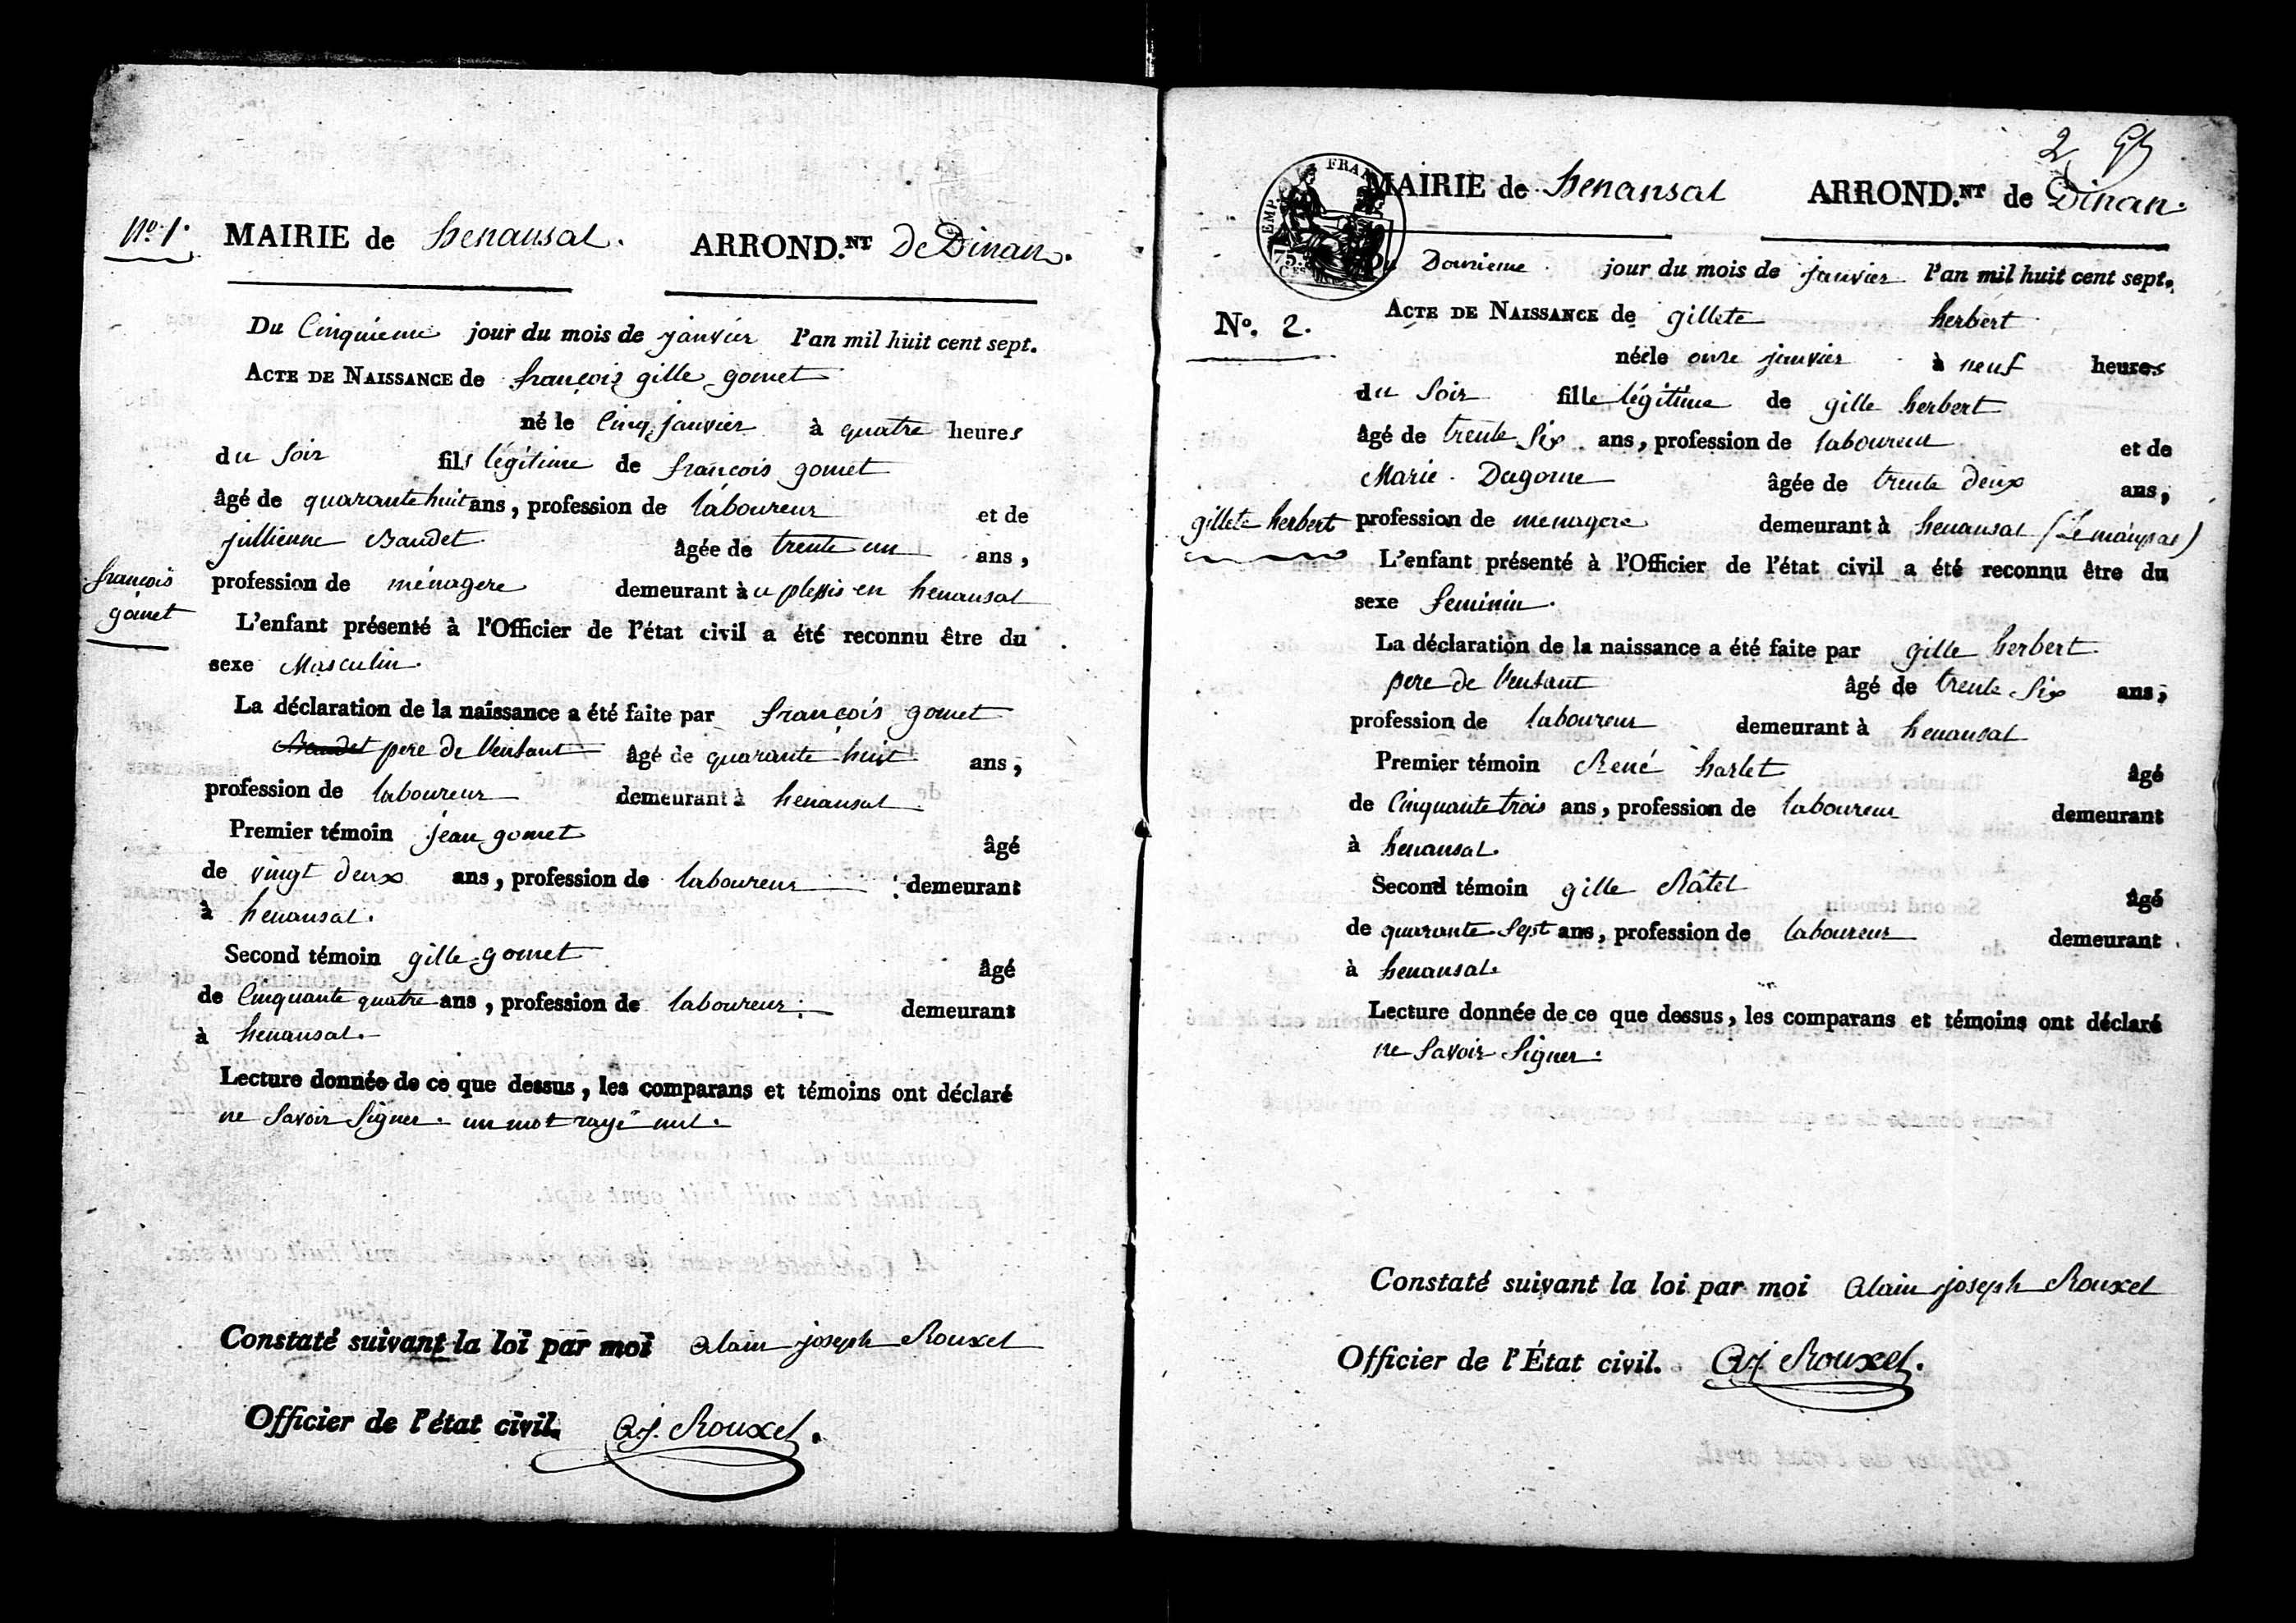 Nº. 1.
MAIRIE de henansal. ARROND.NT De Dinan.
Du Cinquieme jour du mois de janvier l'an mil huit cent sept.
ACTE DE NAISSANCE de françois gille gomet
né le Cinq janvier à quatre heures
du soir fils légitime de francois gomet
âgé de quarante huit ans, profession de laboureur et de
jullienne Baudet âgée de trente un ans,
francois
gomet
profession de ménagere demeurant à u plessis en henansal
L'enfant présenté à l'Officier de l'état civil a été reconnu être du
sexe Masculin.
La déclaration de la naissance a été faite par françois gomet
Baudet pere de l'enfant âgé de quarante huit ans,
profession de laboureur demeurant à henansal
Premier témoin jean gomet âgé
de vingt deux ans, profession de laboureur demeurant
à henansal.
Second témoin gille gomet âgé
de Cinquante quatre ans, profession de laboureur demeurant
à henansal.
Lecture donnée de ce que dessus, les comparans et témoins ont déclaré
ne savoir signer. un mot rayé nul.
Constaté suivant la loi par moi alain joseph Rouxel
Officier de l'état civil. A.j. Rouxel.
2
FRAN
EMP.
75.
CES
MAIRIE de henansal ARROND.NT de Dinan.
Du Douzieme jour du mois de janvier l'an mil huit cent sept.
No. 2.
ACTE DE NAISSANCE de gillete herbert
née le onze janvier à neuf heures
du soir fille légitime de gille herbert
âgé de trente six ans, profession de laboureur et de
Marie Dagorne âgée de trente deux ans,
gillete herbert
profession de menagere demeurant à henansal
L'enfant présenté à l'Officier de l'état civil a été reconnu être du
sexe feminin.
La déclaration de la naissance a été faite par gille herbert
pere de l'enfant âgé de trente six ans,
profession de laboureur demeurant à henansal
Premier témoin René harlet âgé
de Cinquante trois ans, profession de laboureur demeurant
à henansal.
Second témoin gille Râtel âgé
de quarante sept ans, profession de laboureur demeurant
à henansal.
Lecture donnée de ce que dessus, les comparans et témoins ont déclaré
ne savoir signer.
Constaté suivant la loi par moi alain joseph Rouxel
Officier de l'État civil. A.j Rouxel.